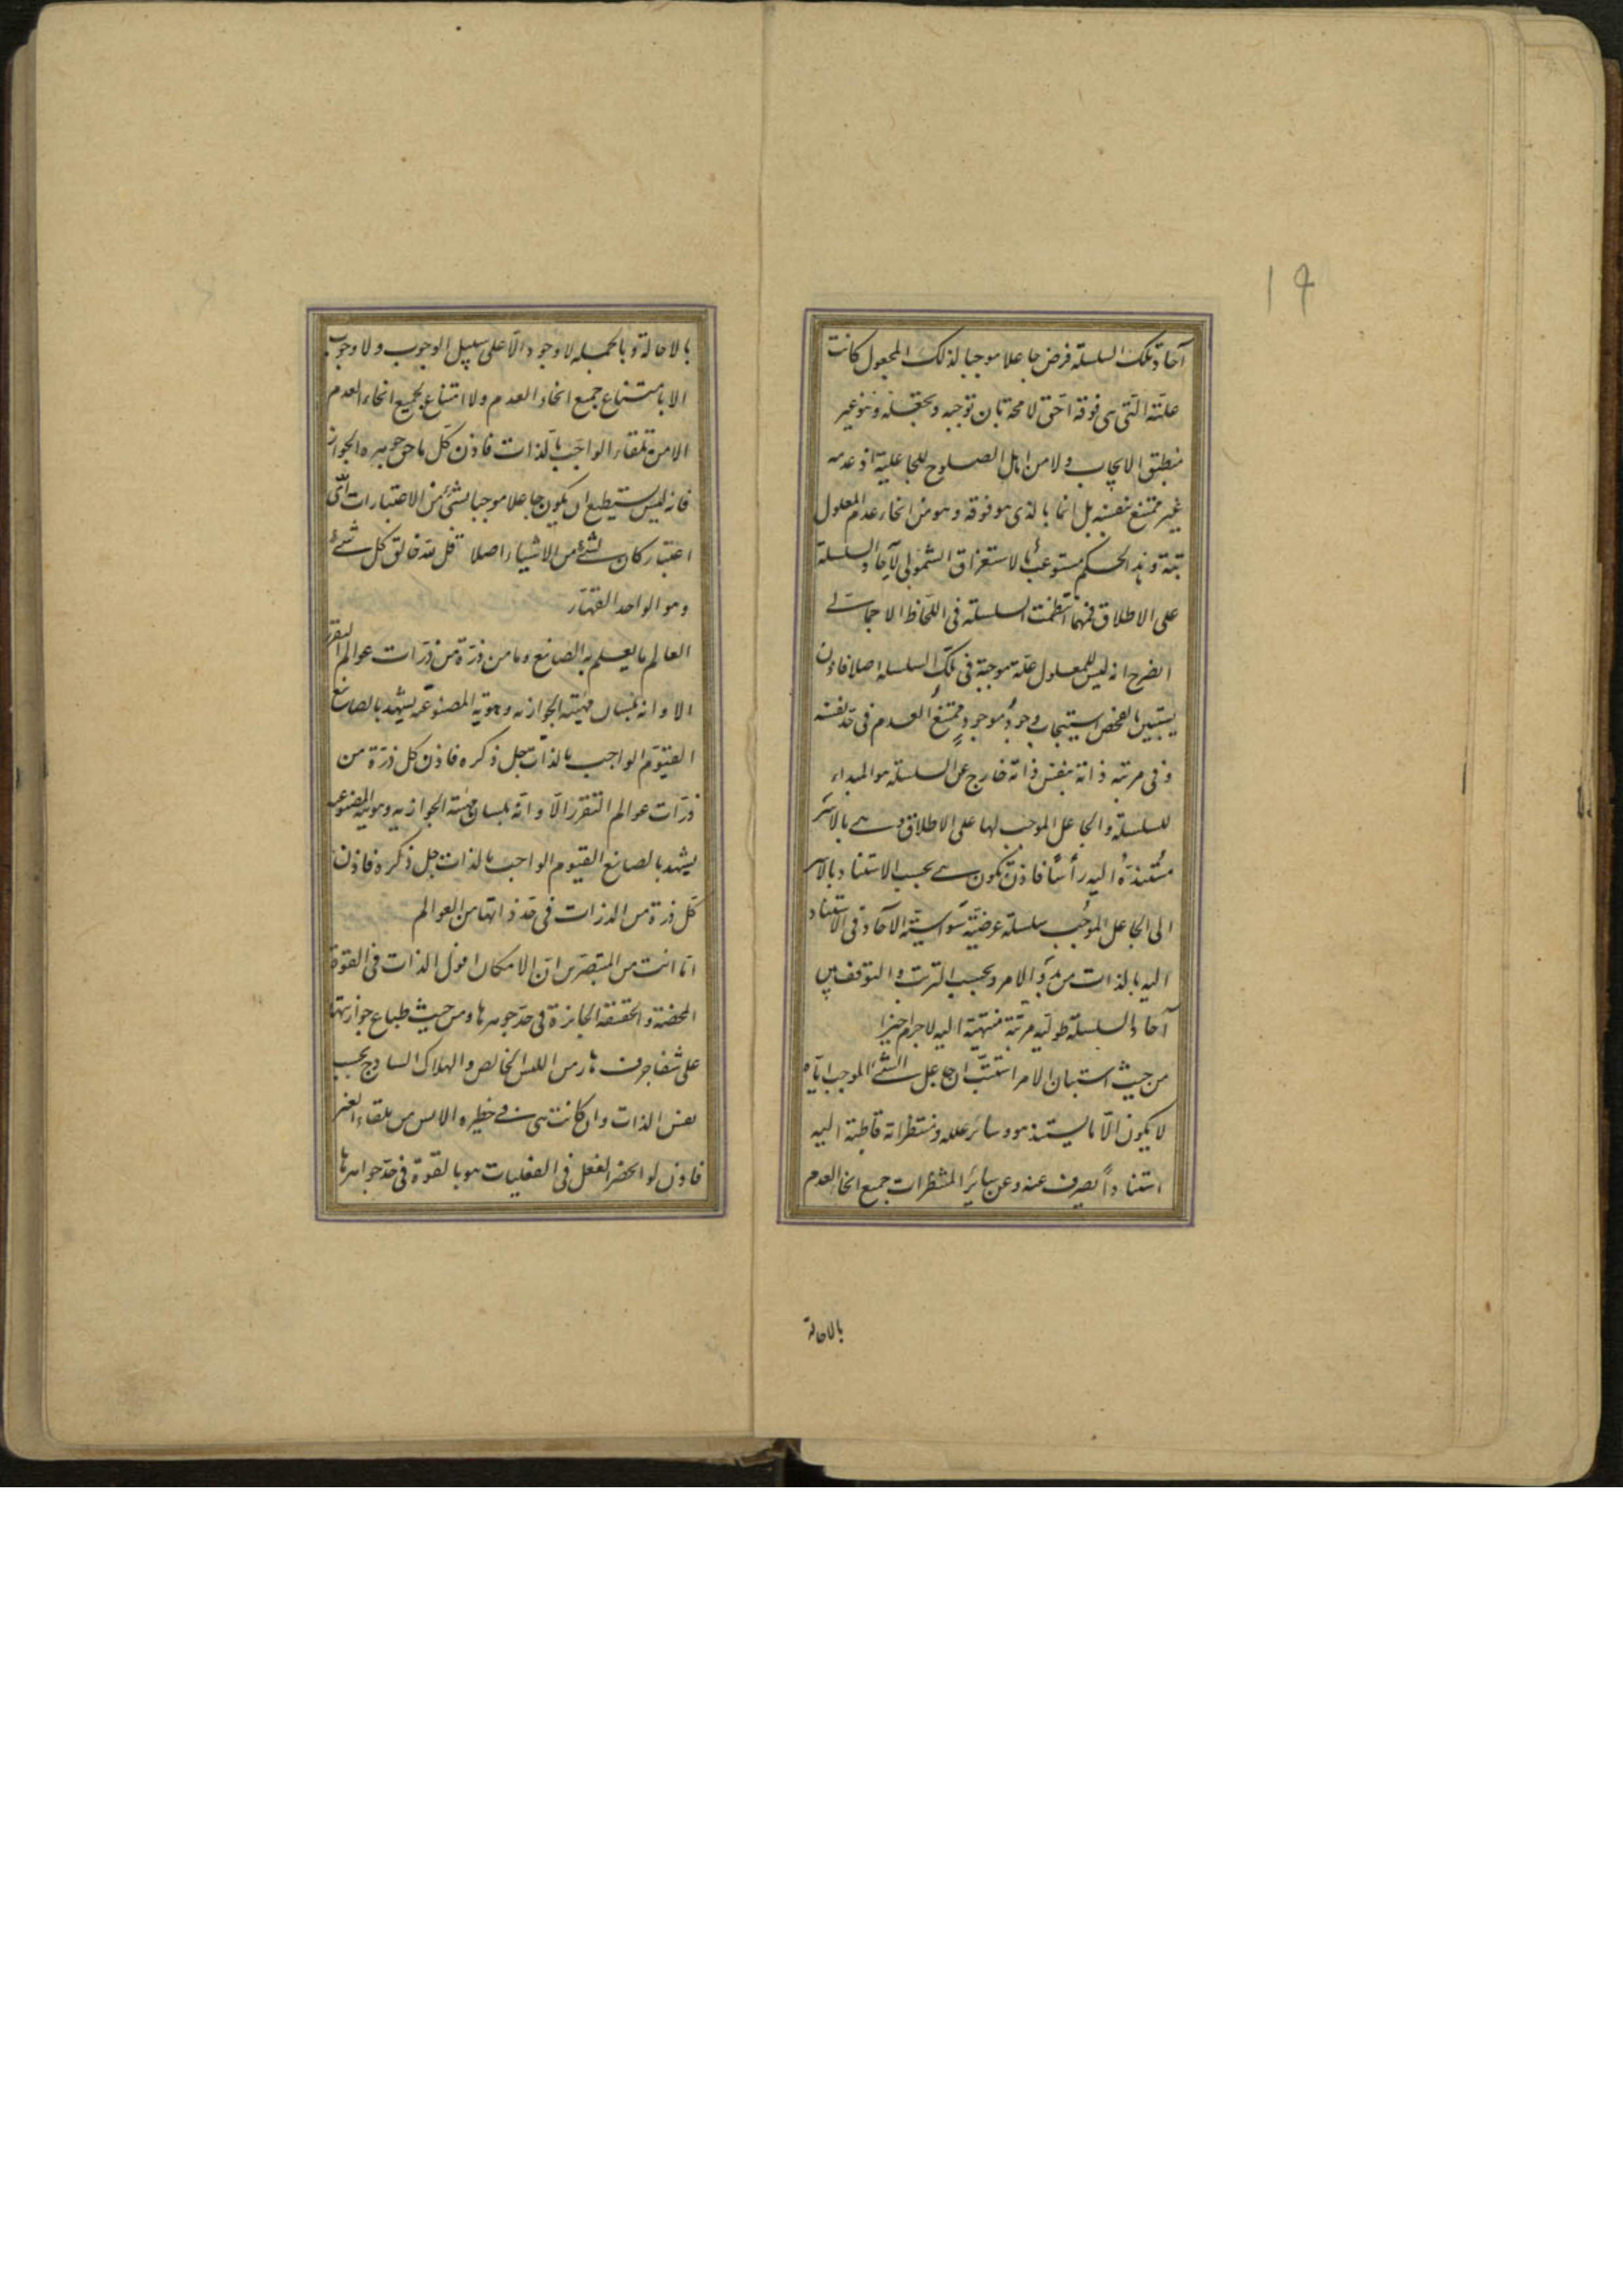 ١٩
آحاد تلك السلسلة فرض جاعلا موجبا لذلك المجعول كانت
علّته الّتى هى فوقه احق لا محة بان توجبه وتجعله وهو غير
منطبق الايجاب ولا من اهل الصلوح للجاعلية اذ عدمه
غير ممتنع بنفسه بل انما بالذى هو فوقه وهو من انحاء عدم المعلول
بتة وهذا الحكم مستوعب بالاستغراق الشمولى لآحاد السلسلة
على الاطلاق فمهما انتظمت السلسلة فى اللحاظ الاجمالى
انصرح انه ليس للمعلول علة موجبة فى تلك السلسلة اصلا فاذن
يستبين بالفحص استيجاب وجود موجودٍ ممتنع العدم فى حد نفسه
وفى مرتبه ذاته بنفس ذاته خارج عن السلسلة هو المبداء
للسلسلة والجاعل الموجب لها على الاطلاق وهى بالاسر
مستندة اليه رأسًا فاذن تكون هى بحسب الاستناد بالاسر
الى الجاعل الموجب سلسلة عرضيّة سواسيّة الآحاد فى الاستناد
اليه بالذات من بدو الامر وبحسب الترتب والتوقف بين
آحاد السلسلة طوليّة مرتبة منتهية اليه لاجرام اخيرا
من حيث استبان الامر استتبّ ان جاعل الشئ الموجب ايّاه
لا يكون الّا ما يستند هو وسائر علله ومنتظراته قاطبة اليه
استنادًا يصرف عنه وعن سائر المنتظرات جميع انحاء العدم
بالاحالة
بالاحالة وبالجملة لا وجود الّا على سبيل الوجوب ولا وجوب
الا بامتناع جميع انحاء العدم ولا امتناع لجميع انحاء العدم
الا من تلقاء الواجب بالذات فاذن كل ما حق جوهره الجواز
فانه ليس يستطيع ان يكون جاعلا موجبا لشئ من الاعتبارات اىّ
اعتبار كان لشئ من الاشياء اصلا قل الله خالق كل شئ
وهو الواحد القهّار
العالم ما يعلم به الصانع وما من ذرّة من ذرّات عوالم التقرر
الا وانه بلسان مهيّته الجوازيه وهويّته المصنوعيه يشهد بالصانع
القيّوم الواجب بالذات جل ذكره فاذن كل ذرّة من
ذرّات عوالم التقرر الّا وانّه بلسان مهيّته الجوازيه وهويّته المصنوعيه
يشهد بالصانع القيوم الواجب بالذات جل ذكره فاذن
كل ذرة من الذرات فى حد ذاتها من العوالم
اما انت من المتبصّرين ان الامكان افول الذات فى القوة
المحضة والحقيقة الجائزة فى حد جوهرها ومن حيث طباع جوازيتها
على شفا جرف هار من الليس الخالص والهلاك الساذج بحسب
نفس الذات وان كانت هى فى حظيره الايس من تلقاء الغير
فاذن لو احضر الفعل فى الفعليات هو بالقوة فى حد جواهرها